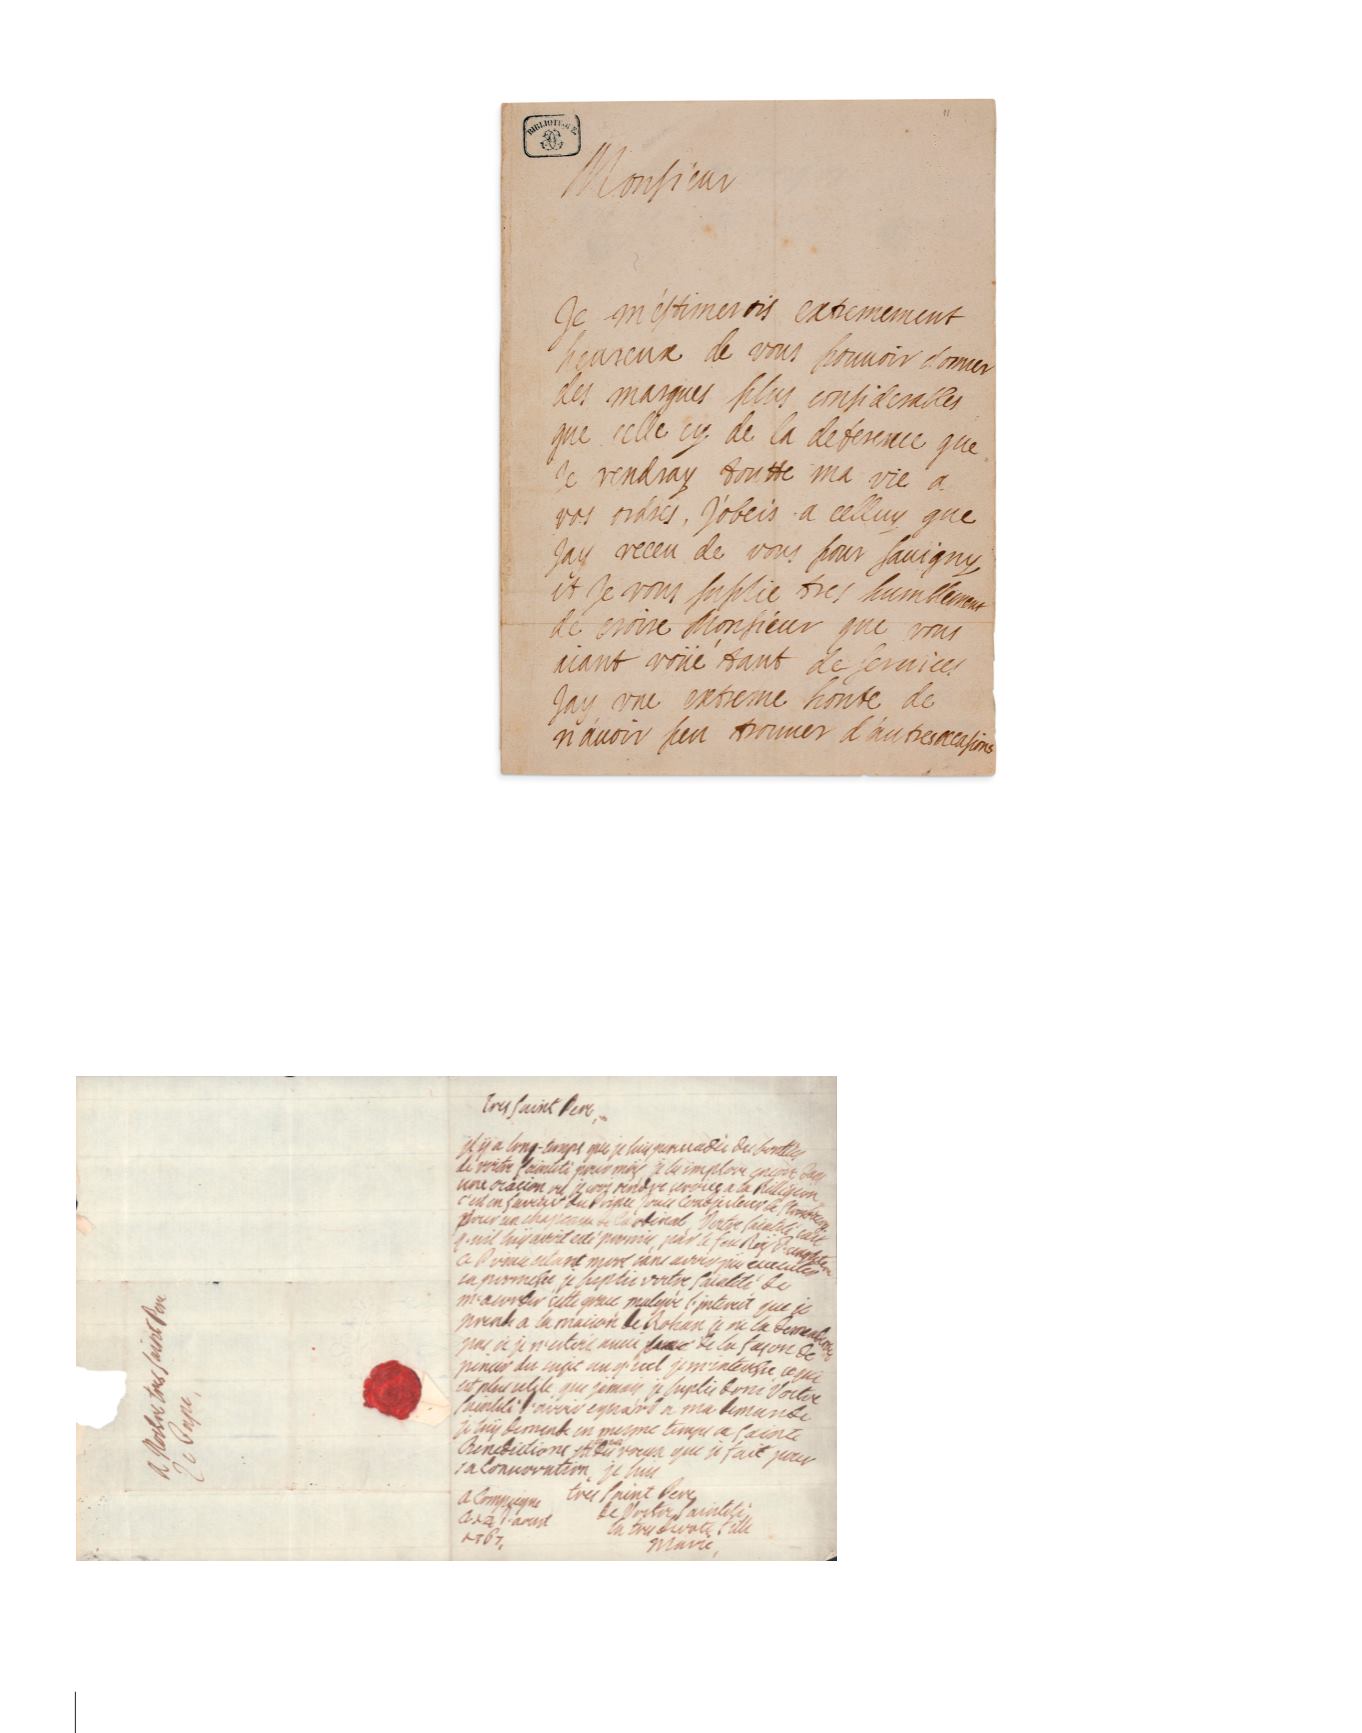 BIBLIOTECA
11
Monsieur
Je m'éstimerois extremement
heureux de vous pouvoir donner
des marques plus considerables
que celle cy de la deference que
Je rendray toutte ma vie a
vos ordres, J'obeis a celluy que
Jay receu de vous pour sauigny
et Je vous suplie tres humblement
de croire Monsieur que vous
aiant voüé tant de seruices
Jay vne extreme honte de
n'auoir peu trouuer d'autres occasions
tres saint Pere,
il y a long-temps que je suis persuadée des bontés
de votre Sainteté pour moy, je les implore encore dans
une ocasion ou je crois rendre service a la Religion
c'est en faveur du Prince Louis de
pour un chapeau de Cardinal, Votre Sainteté
qu'il luy avoit eté promis par le feu Roy
ce Prince etant mort sans avoir pu executer
sa promesse je suplie votre Sainteté de
m'acorder cette grace malgré l'interest que je
prend a la maison de Rohan je ne la demanderois
pas si je n'etois aussi de la façon de
penser du sujet auquel je m'interesse ce qui
est plus utile que jamais, je suplie donc Votre
Sainteté d'avoir egard a ma demande
je luy demende en mesme temps sa sainte
Benediction voeux que je fait pour
sa Conservation, je suis
tres Saint Pere,
de Votre Sainteté
la tres devote fille
Marie,
a Compiegne
ce 12 d'aout
1767,
a Notre tres saint Pere
Le Pape,